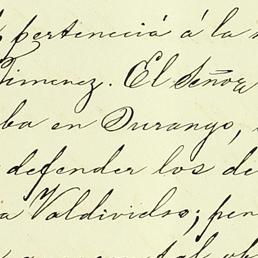 pertenecía á la
Jimenez. El Señor
ba en Durango,
defender los de
a Valdividso; per